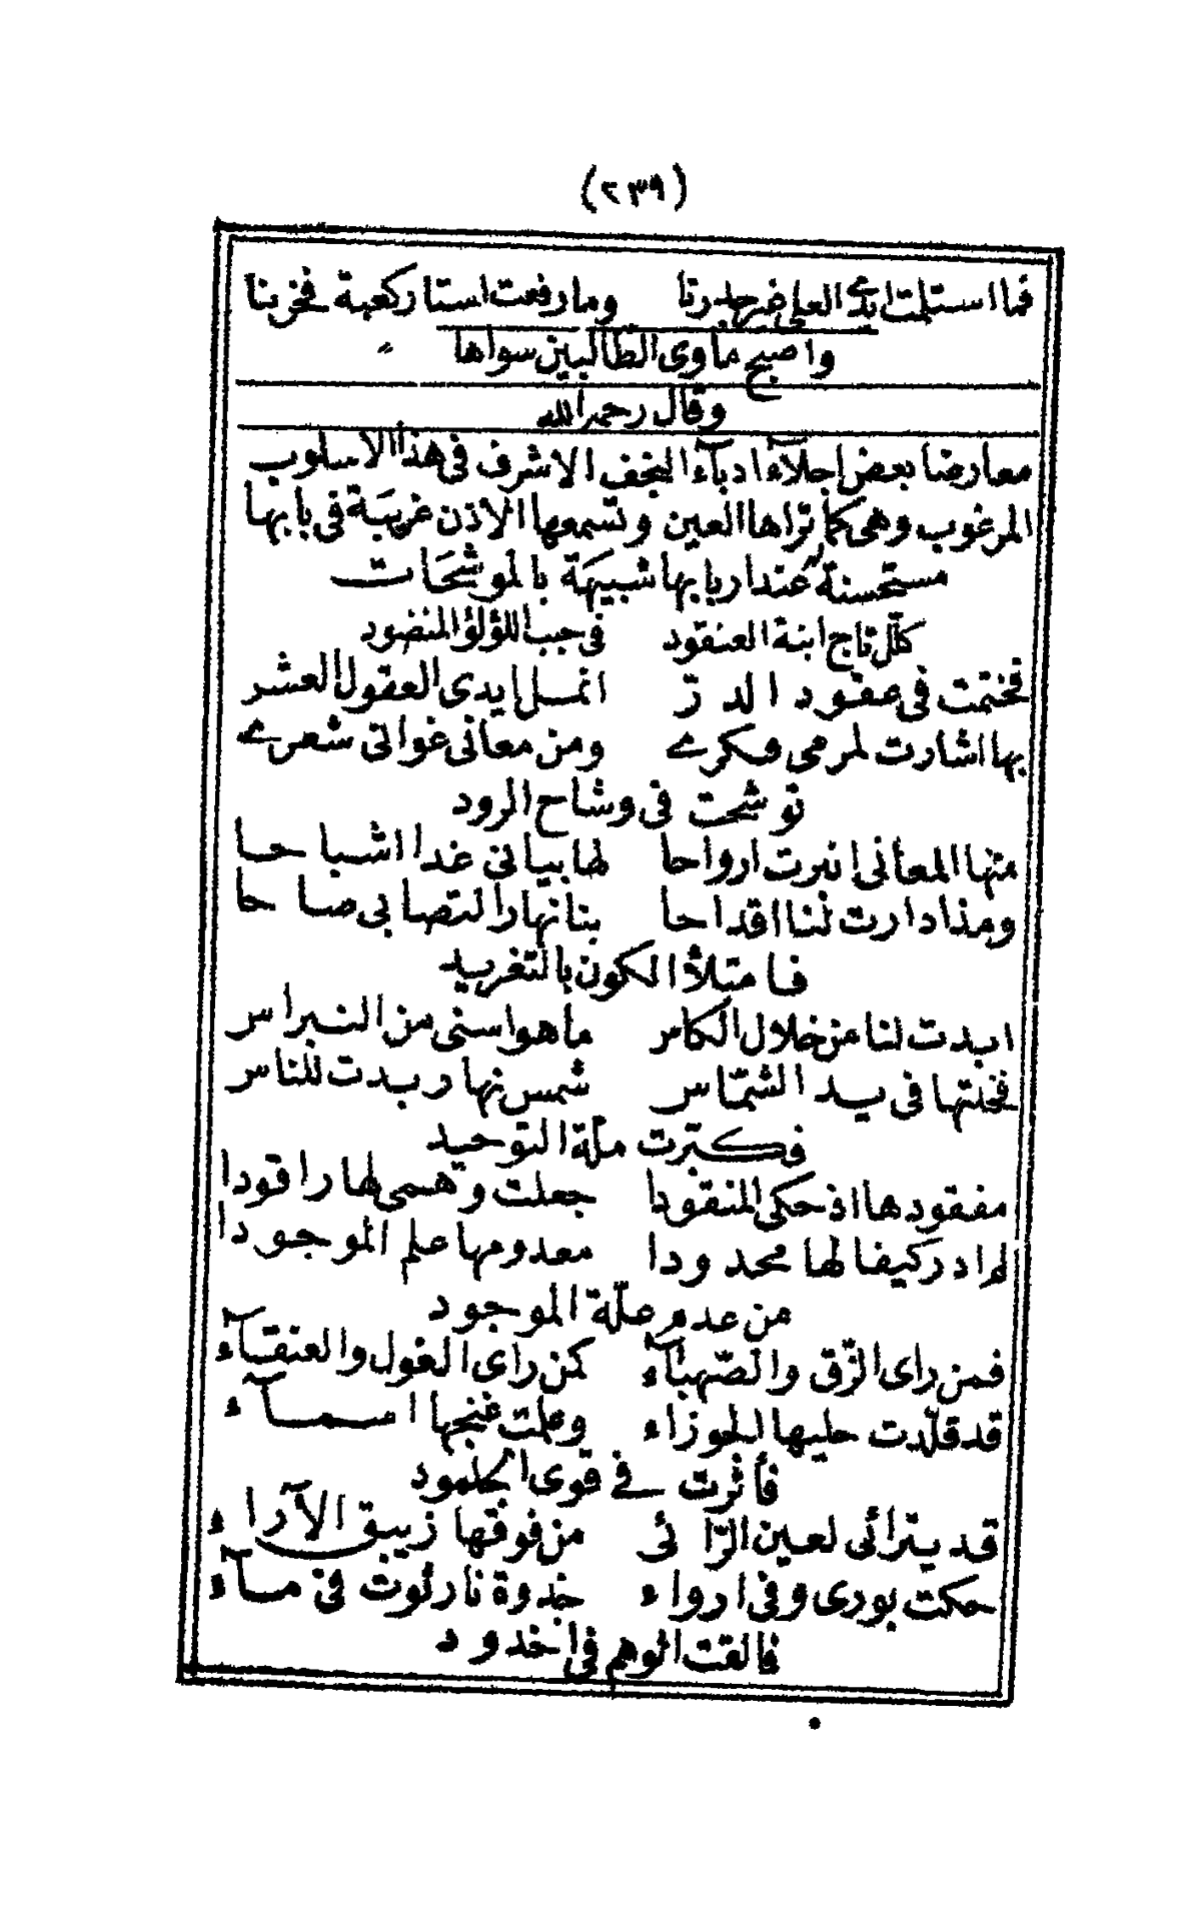 (٢٣٩)
فما استلمت ايدي العلى ضر جدرنا وما رفعت استار كعبة فخرنا
واصبح ماوى الطالبين سواها
وقال رحمه الله
معارضا بعض اجلآء ادبآء النجف الاشرف فى هذا الاسلوب
المرغوب وهى كما تراها العين وتسمعها الأذن غريبة فى بابها
مستحسنة عند اربابها شبيهة بالموشحات
كلّل تاج ابنة العنقود فى حبب اللؤلؤ المنضود
فختمت فى عقود الدر انمل ايدى العقول العشر
بها اشارت لمرمى فكري ومن معانى غوانى شعري
توشحت فى وشاح الرود
منها المعانى انبرت ارواحا لها بيانى غدا اشباحا
ومذ ادارت لنا اقداحا بنانها را التصابى صاحا
فامتلأ الكون بالتغريد
ابدت لنا من خلال الكاس ما هو اسنى من النبراس
فخلتها فى يد الشمّاس شمس نهار بدت للناس
فكبرت ملّة التوحيد
مفقودها اذ حكى المنقودا جعلت وهمى لها راقودا
لم ادر كيفا لها محدودا معدومها علم الموجودا
من عدم علّة الموجود
فمن راى الزّق والصّهبآء كمن راى الغول والعنقآء
قد قلّدت حليها الجوزاء وعلمت غنجها اسمآء
فأثرت فى قوى الجلمود
قد يترائى لعين الرّائى من فوقها زيبق الآراء
حكت بورى وفى ارواء جذوة نار ثوت فى مآء
فالقت الوهم فى اخدود